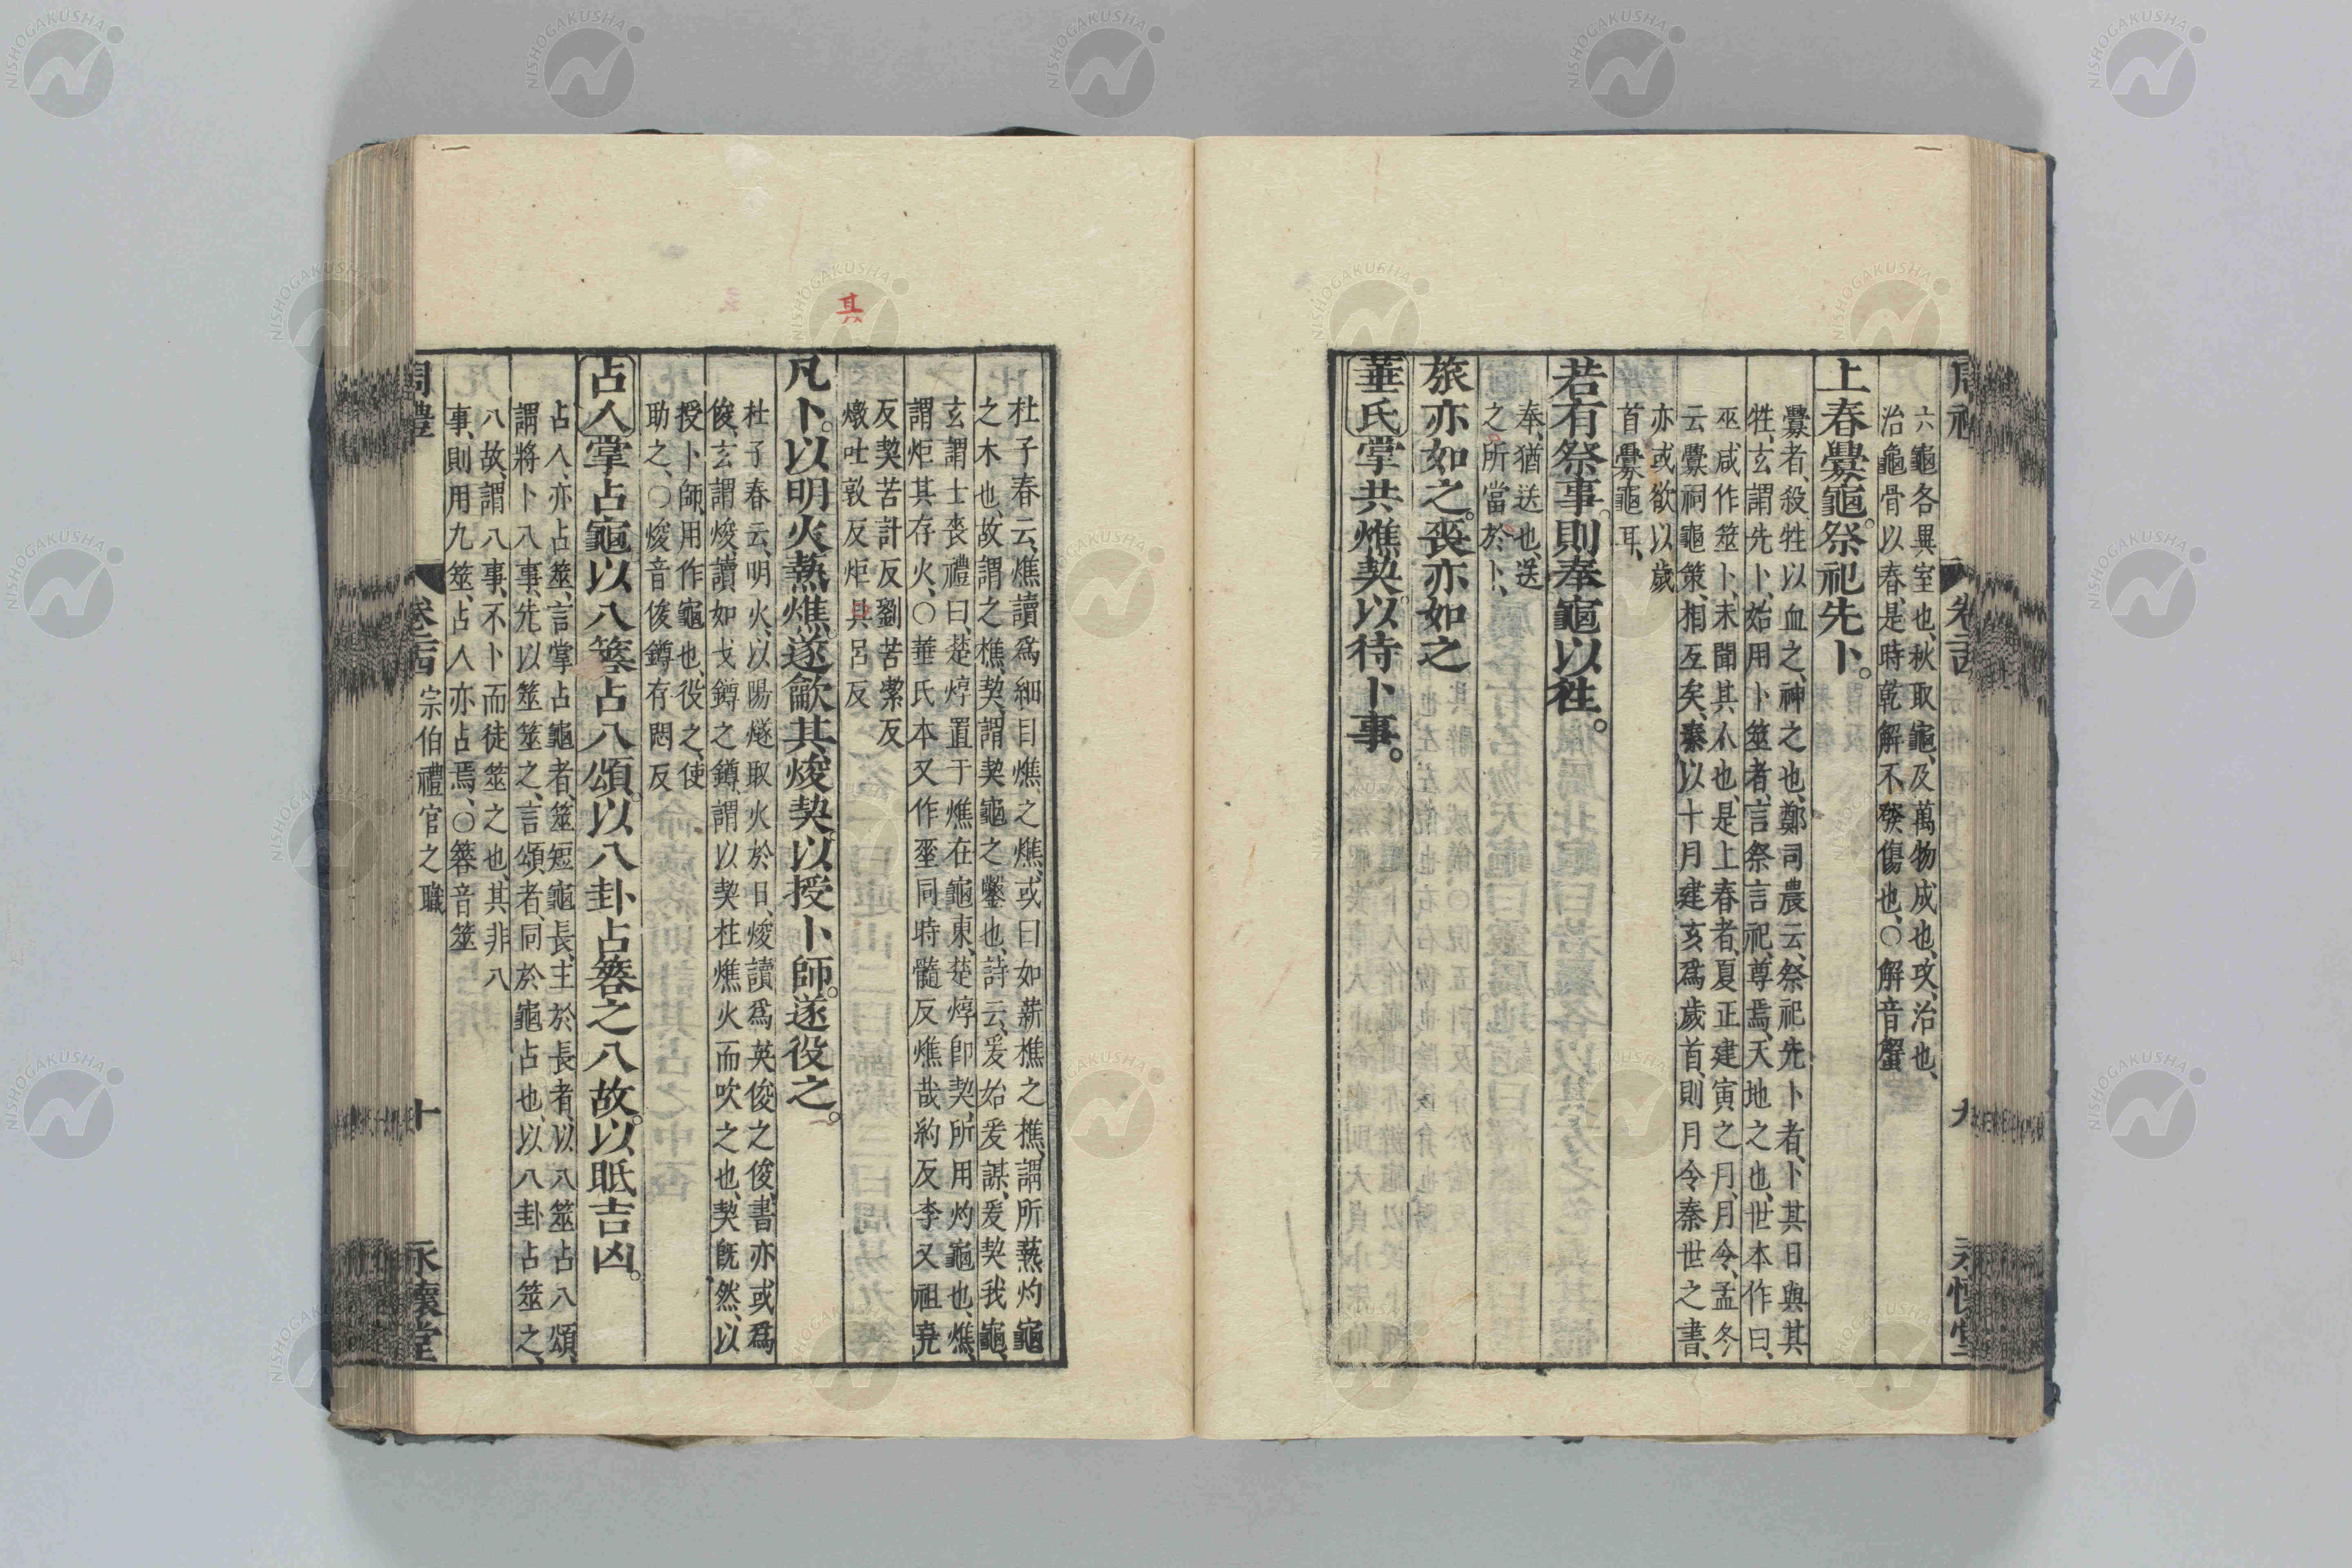 六龜各異室也、秋取龜、及萬物成也、攻、治也、
治龜骨以春、是時乾解不癹傷也、○解音蟹
上春釁龜。祭祀先卜。
釁者、殺牲以血之、神之也、鄭司農云、祭祀先卜者、卜其日與其
牲、玄謂先卜、始用卜筮者、言祭言祀、尊焉、天地之也、世本作曰、
巫咸作筮卜、未聞其人也、是上春者、夏正建寅之月、月令、孟冬
云釁祠龜策、相互矣、秦以十月建亥爲歲首、則月令秦世之書、
亦或欲以歲
首釁龜耳、
若有祭事。則奉龜以往。
奉、猶送也、送
之所當於卜、
旅亦如之。喪亦如之
華氏掌共燋契。以待卜事。
九
杜子春云、燋讀爲細目燋之燋、或曰如薪樵之樵、謂所爇灼龜
之木也、故謂之樵、契、謂契龜之鑿也、詩云、爰始爰謀、爰契我龜、
玄謂士喪禮曰、楚焞置于燋在龜東、楚焞卽契、所用灼龜也、燋、
謂炬其存火、○華氏本又作垂同時髓反燋哉約反李又祖堯
反契苦計反劉苦絜反
燉吐敦反炬具呂反
其
凡卜。以明火爇燋。遂龡其焌契。以授卜師。遂役之。
杜子春云、明火、以陽燧取火於日、焌讀爲英俊之俊、書亦或爲
俊、玄謂焌、讀如戈鐏之鐏、謂以契柱燋火而吹之也、契旣然、以
授卜師、用作龜也、役之、使
助之、○焌音俊鐏存悶反
占人掌占龜。以八簭占八頌。以八卦占簭之八故。以眡吉凶。
占人、亦占筮、言掌占龜者、筮短龜長、主於長者、以八筮占八頌、
謂將卜八事、先以筮筮之、言頌者、同於龜占也、以八卦占筮之、
八故、謂八事、不卜而徒筮之也、其非八
事、則用九筮、占人亦占焉、○簭音筮
周禮 卷二十四 宗伯禮官之職 十 永懷堂